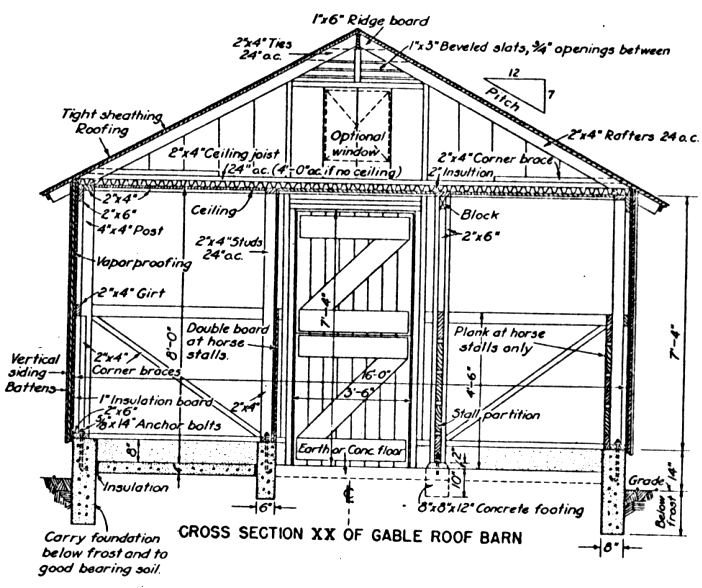 1"x6" Ridge board
2"x4" Ties
24" o.c.
1"x3" Beveled slats, 3/4" openings between
12
7
Pitch
Tight sheathing
Roofing
Optional
window
2"x4" Rafters 24 o.c.
2"x4" Ceiling joist
24" o.c. (4'-0" oc. if no ceiling)
2"x4" Corner brace
2" Insultion
2"x4"
2"x6"
4"x4" Post
Ceiling
Block
2"x6"
2"x4" Studs
24" o.c.
Vaporproofing
2"x4" Girt
8'-0"
7'-4"
Double board
at horse
stalls.
Plank at horse
stalls only
7'-4"
4'-6"
Vertical
siding
Battens
2"x4"
Corner braces
16'-0"
3'-6"
1" Insulation board
2"x6"
5/8"x14" Anchor bolts
2"x4"
Stall partition
8"
Earth or Conc floor
12"
10"
Insulation
6"
℄
8"x8"x12" Concrete footing
Grade
14"
Below
frost
8"
Carry foundation
below frost and to
good bearing soil.
CROSS SECTION XX OF GABLE ROOF BARN